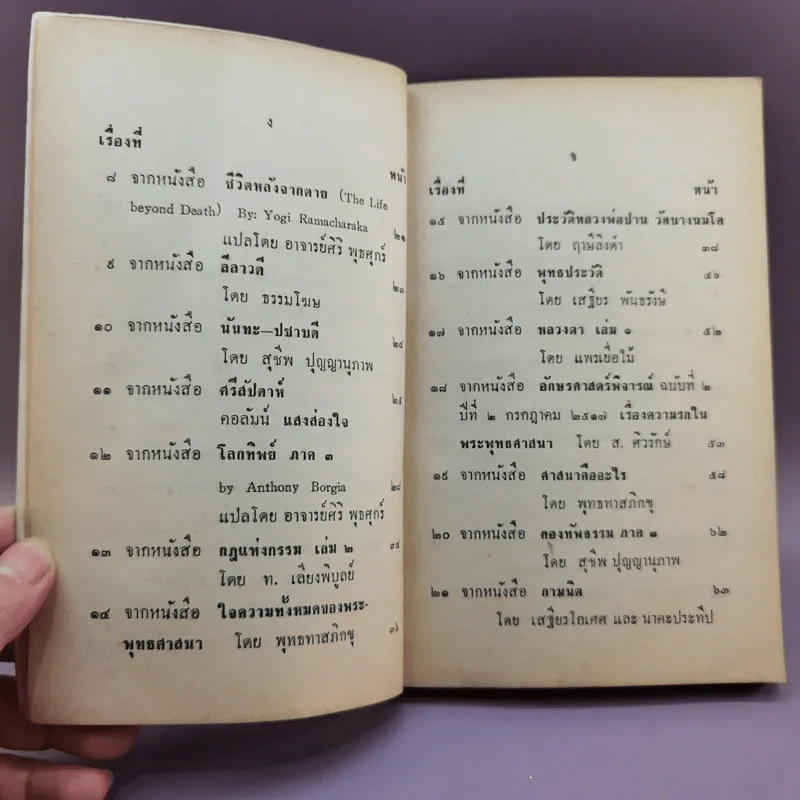 ง
เรื่องที่ หน้า
๘ จากหนังสือ ชีวิตหลังจากตาย (The Life
beyond Death) By: Yogi Ramacharaka
แปลโดย อาจารย์ศิริ พุธศุกร์ ๒๑
๙ จากหนังสือ ลีลาวดี
โดย ธรรมโฆษ ๒๓
๑๐ จากหนังสือ นันทะ—ปชาบดี
โดย สุชีพ ปุญญานุภาพ ๒๔
๑๑ จากหนังสือ ศรีสัปดาห์
คอลัมน์ แสงส่องใจ
๑๒ จากหนังสือ โลกทิพย์ ภาค ๓
by Anthony Borgia ๒๘
แปลโดย อาจารย์ศิริ พุธศุกร์
๑๓ จากหนังสือ กฎแห่งกรรม เล่ม ๒ ๓๔
โดย ท. เลียงพิบูลย์
๑๔ จากหนังสือ ใจความทั้งหมดของพระ-
พุทธศาสนา โดย พุทธทาสภิกขุ ๓๖
จ
เรื่องที่ หน้า
๑๕ จากหนังสือ ประวัติหลวงพ่อปาน วัดบางนมโค
โดย ฤาษีลิงดำ ๓๘
๑๖ จากหนังสือ พุทธประวัติ ๔๖
โดย เสฐียร พันธรังษี
๑๗ จากหนังสือ หลวงตา เล่ม ๑ ๕๒
โดย แพรเยื่อไม้
๑๘ จากหนังสือ อักษรศาสตร์พิจารณ์ ฉบับที่ ๒
ปีที่ ๒ กรกฎาคม ๒๕๑๗ เรื่องความรกใน
พระพุทธศาสนา โดย ส. ศิวรักษ์ ๕๓
๑๙ จากหนังสือ ศาสนาคืออะไร ๕๘
โดย พุทธทาสภิกขุ
๒๐ จากหนังสือ กองทัพธรรม ภาค ๑ ๖๒
โดย สุชีพ ปุญญานุภาพ
๒๑ จากหนังสือ กามนิต ๖๓
โดย เสฐียรโกเศศ และ นาคะประทีป